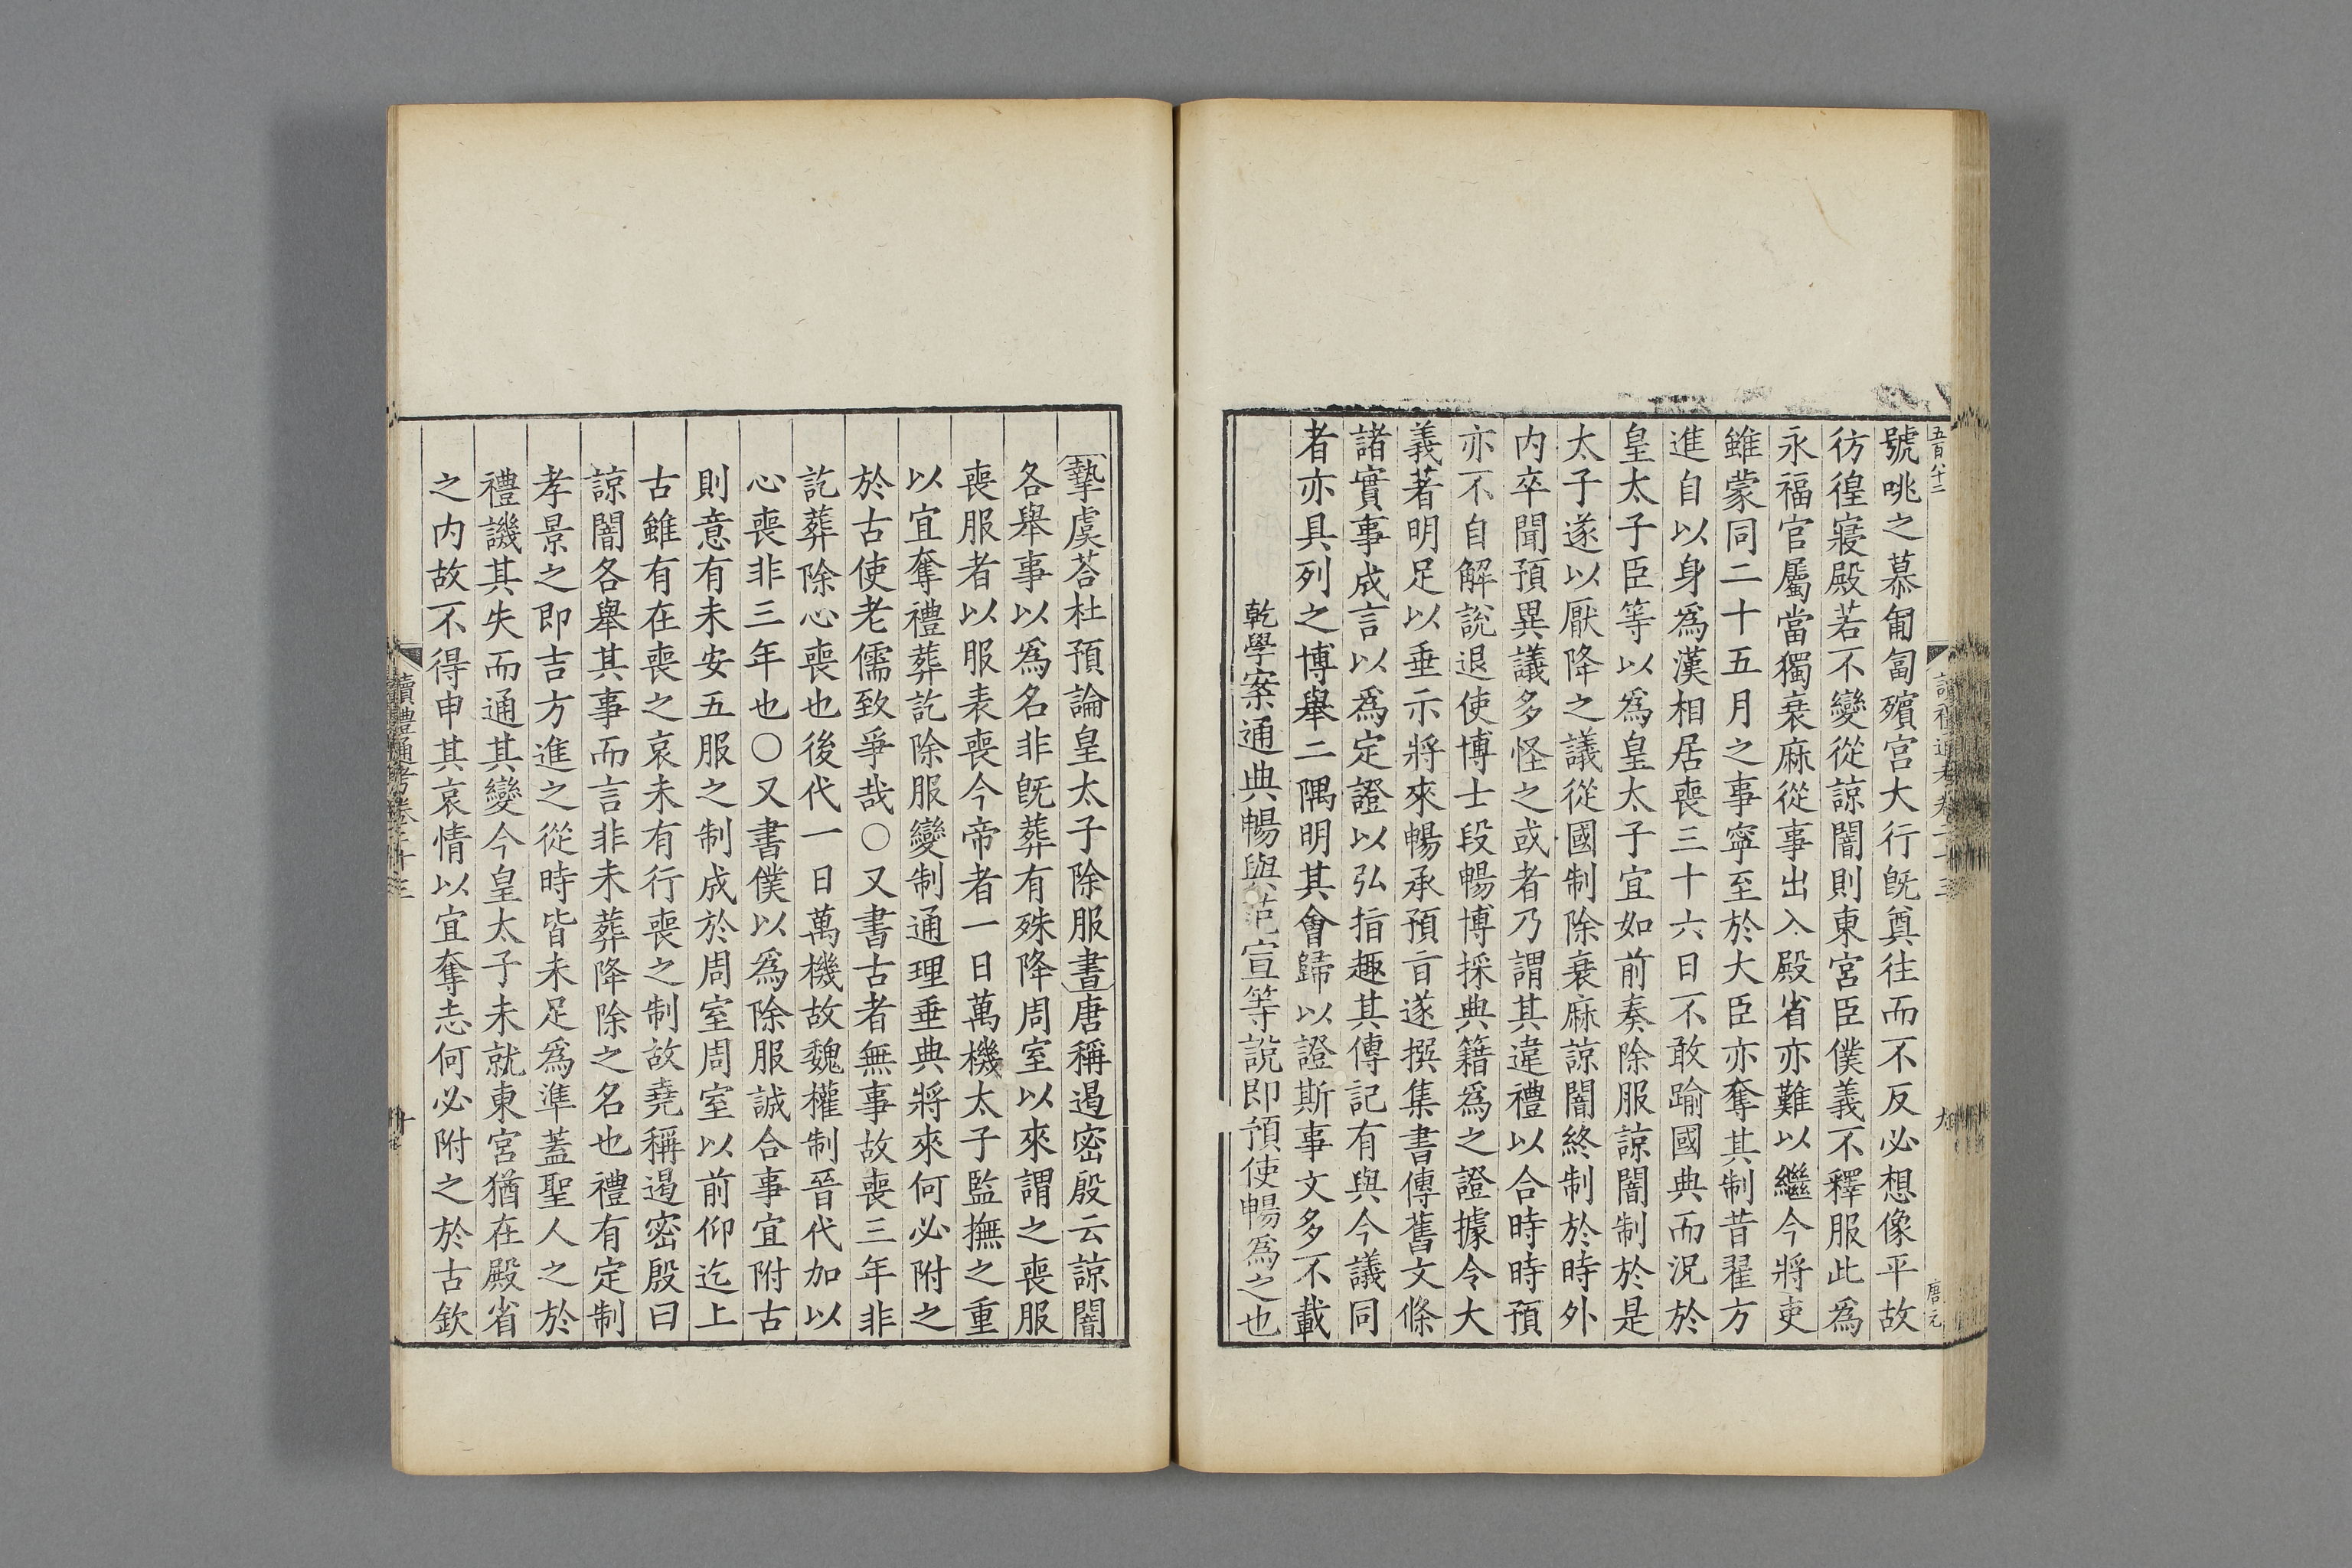 五百八十二
讀禮通考卷二十三
九
唐元
號咷之慕匍匐殯宮大行旣奠往而不反必想像平故
彷徨寢殿若不變從諒闇則東宮臣僕義不釋服此爲
永福官屬當獨衰麻從事出入殿省亦難以繼今將吏
雖蒙同二十五月之事寧至於大臣亦奪其制昔翟方
進自以身爲漢相居喪三十六日不敢踰國典而況於
皇太子臣等以爲皇太子宜如前奏除服諒闇制於是
太子遂以厭降之議從國制除衰麻諒闇終制於時外
内卒聞預異議多怪之或者乃謂其違禮以合時時預
亦不自解說退使博士段暢博採典籍爲之證據令大
義著明足以垂示將來暢承預旨遂撰集書傳舊文條
諸實事成言以爲定證以弘指趣其傳記有與今議同
者亦具列之博舉二隅明其會歸以證斯事文多不載
乾學案通典暢與范宣等說即預使暢爲之也
摯虞荅杜預論皇太子除服書唐稱遏密殷云諒闇
各舉事以爲名非旣葬有殊降周室以來謂之喪服
喪服者以服表喪今帝者一日萬機太子監撫之重
以宜奪禮葬訖除服變制通理垂典將來何必附之
於古使老儒致爭哉○又書古者無事故喪三年非
訖葬除心喪也後代一日萬機故魏權制晉代加以
心喪非三年也○又書僕以爲除服誠合事宜附古
則意有未安五服之制成於周室周室以前仰迄上
古雖有在喪之哀未有行喪之制故堯稱遏密殷曰
諒闇各舉其事而言非未葬降除之名也禮有定制
孝景之即吉方進之從時皆未足爲準蓋聖人之於
禮譏其失而通其變今皇太子未就東宮猶在殿省
之内故不得申其哀情以宜奪志何必附之於古欽
讀禮通考卷二十三
十